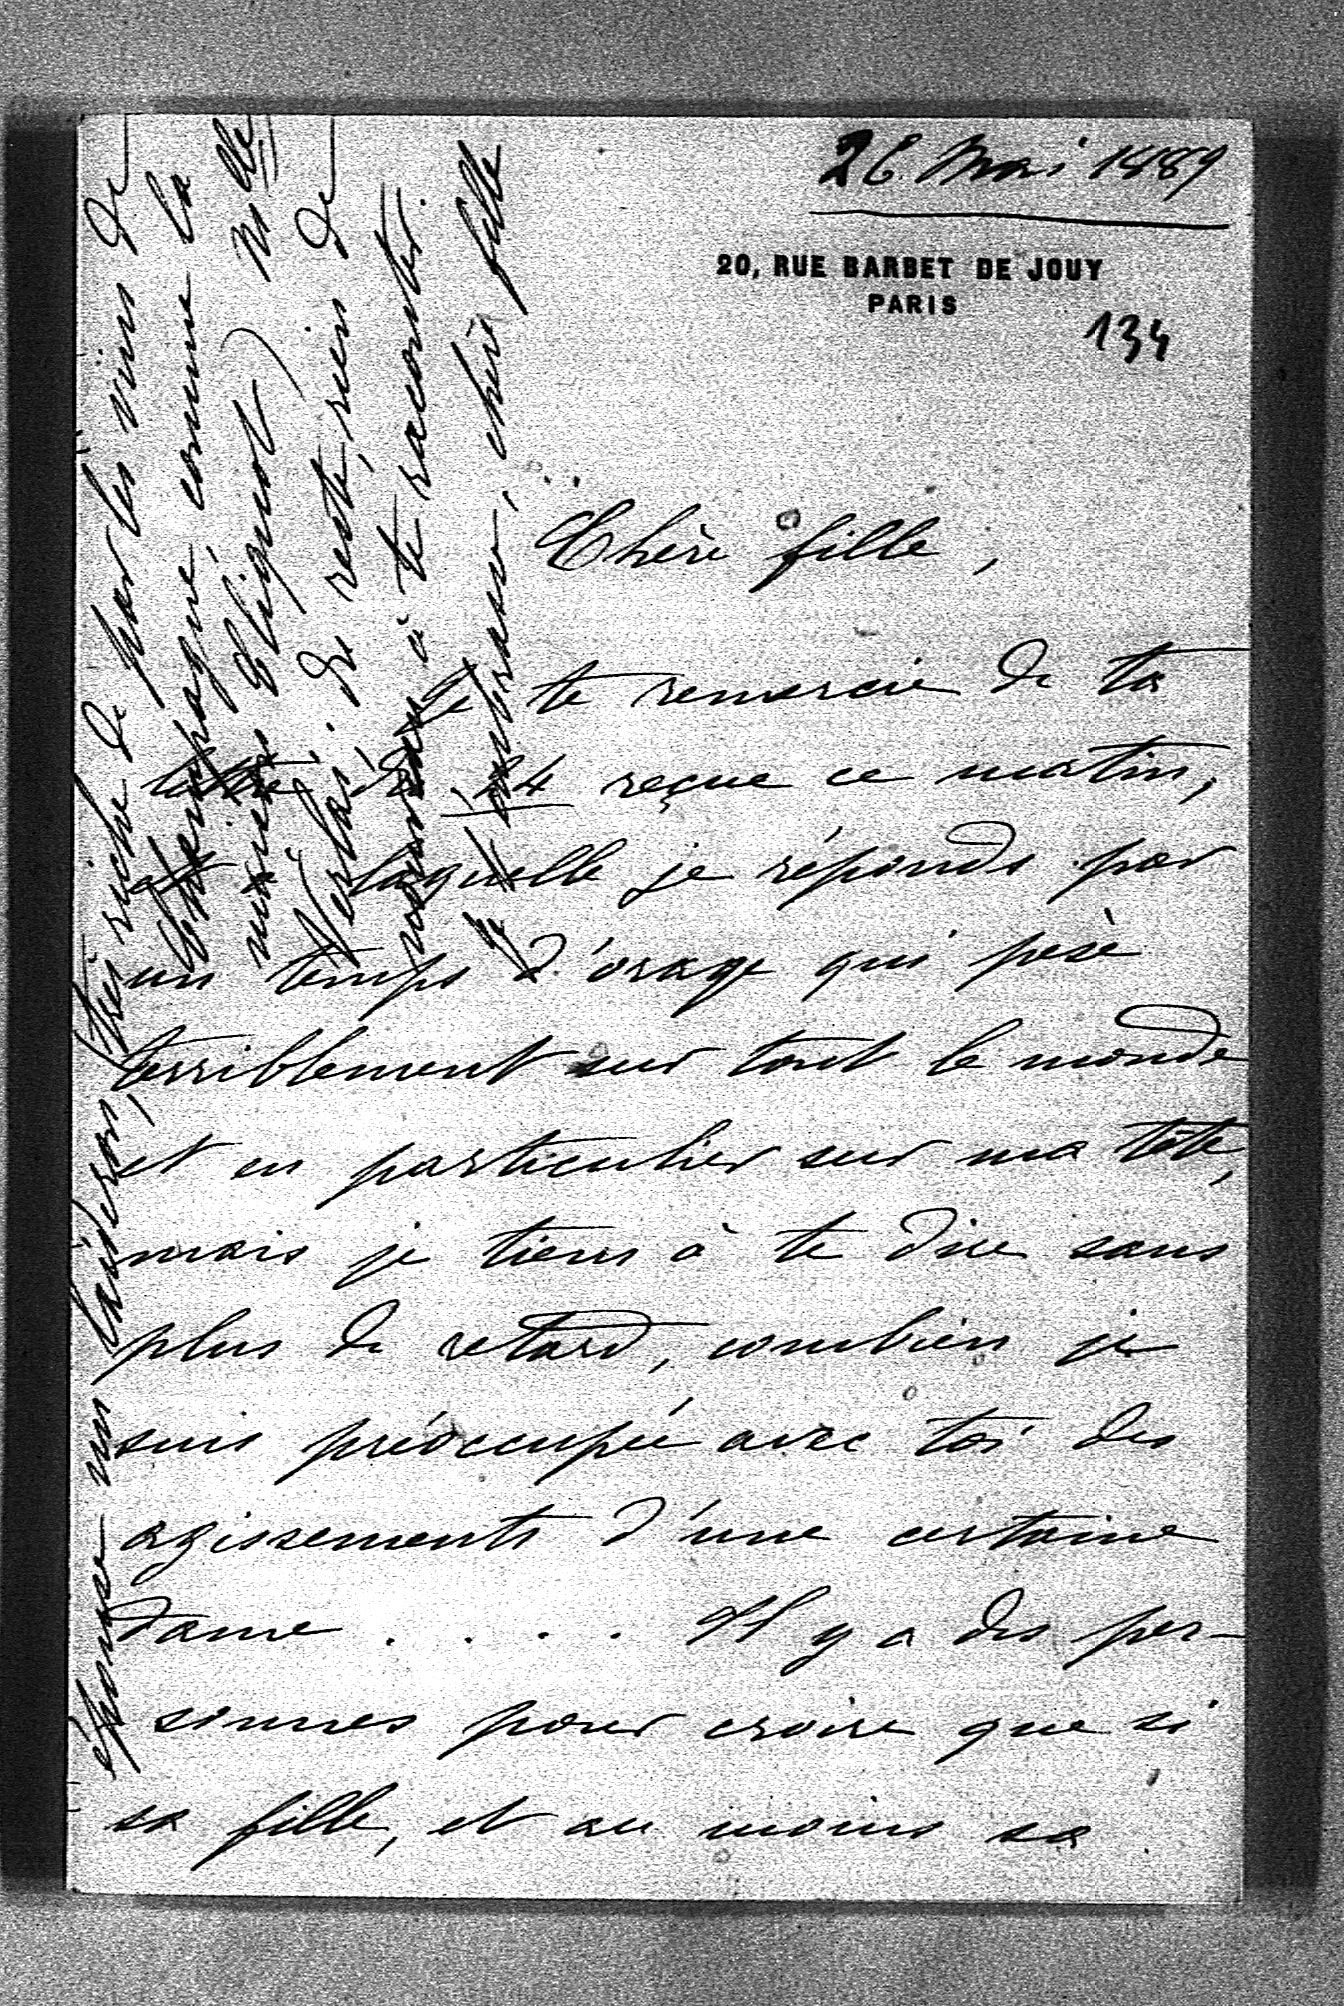 26 Mai 1889
20, RUE BARBET DE JOUY
PARIS
134
Chère fille,
Je te remercie de ta
lettre du 24 reçue ce matin,
et à laquelle je réponds par
un temps d'orage qui pèse
terriblement sur tout le monde
et en particulier sur ma tête,
mais je tiens à te dire sans
plus de retard, combien je
suis préoccupée avec toi des
agissements d'une certaine
dame . . . . . Il y a des per-
sonnes pour croire que si
sa fille, et au moins sa
épouse un laideron, très riche de par les vins de
Champagne, comme la
nièce Cliquot) Mlle
Verlai. du reste, rien de
nouveau à te raconter.
Je t'embrasse, chère fille